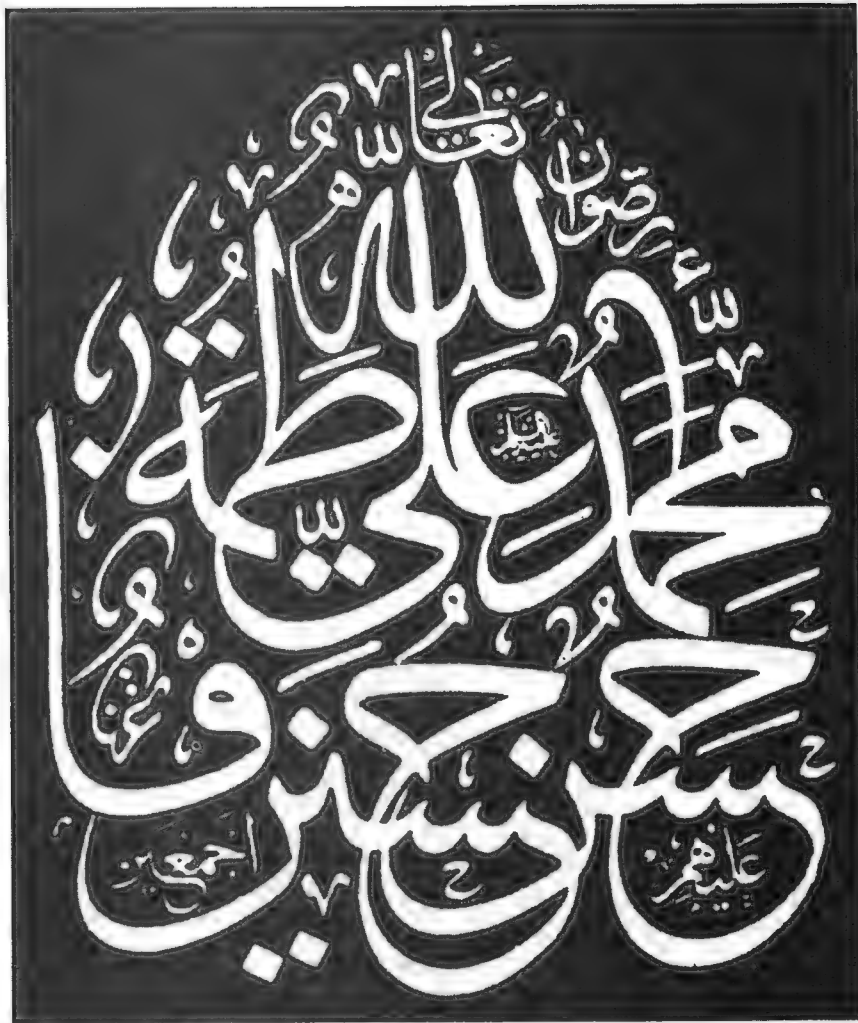 الله
محمد علي فاطمة
حسن حسين
رضوان الله تعالى عليهم اجمعين